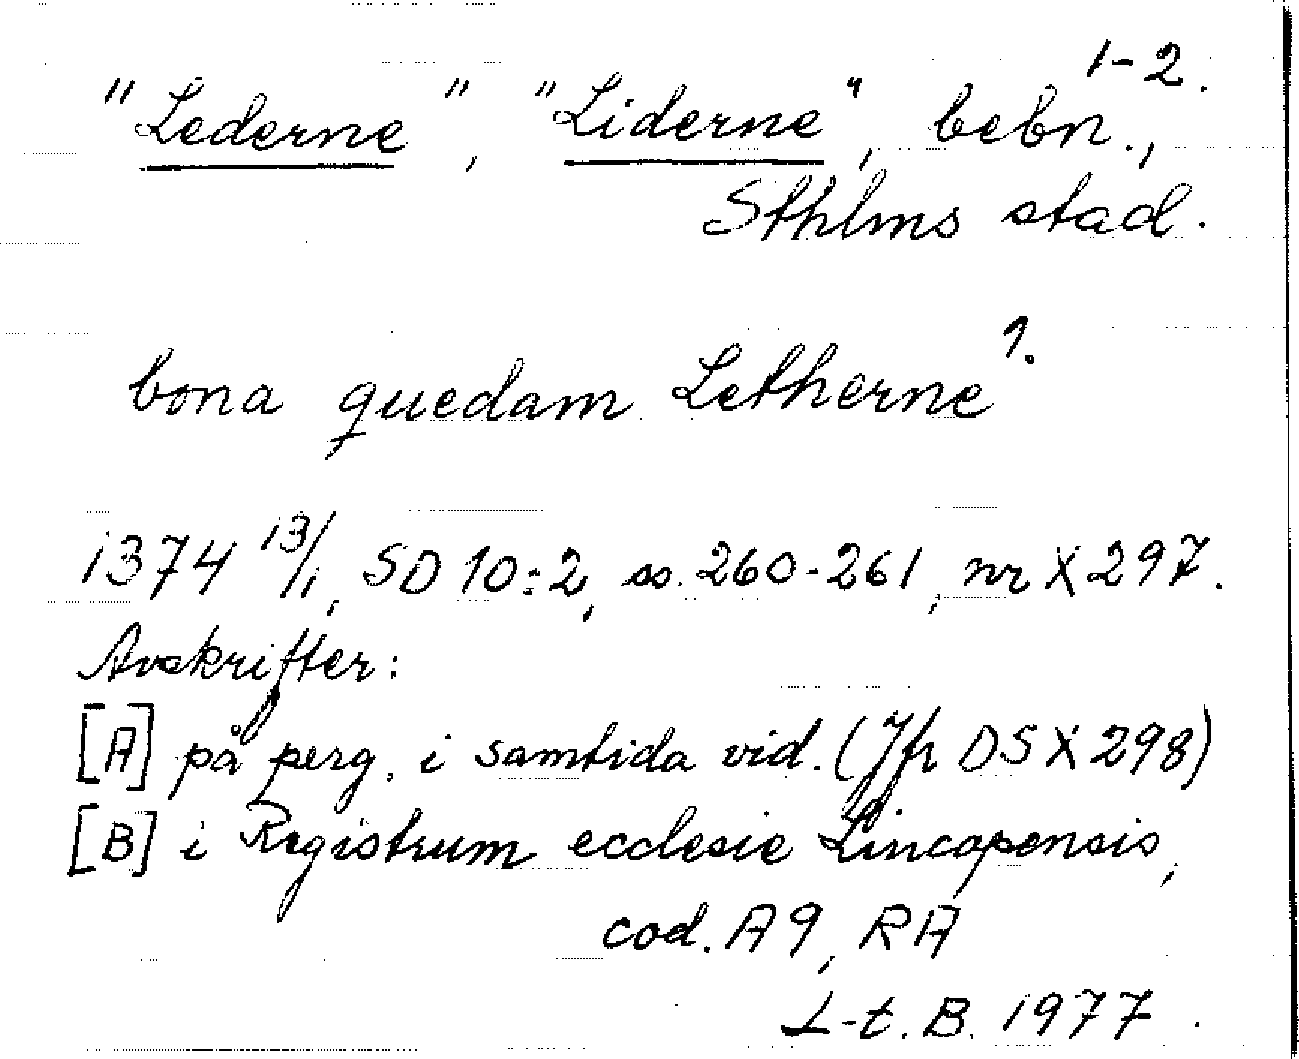 1-2.
"Lederne", "Liderne", bebn.,
Sthlms stad.
bona quedam Letherne 1.
1374 13/1, SD 10:2, ss. 260-261, nr X 297.
Avskrifter:
[A] på perg. i samtida vid. (Jfr DS X 298)
[B] i Registrum ecclesie Lincopensis,
cod. A 9, RA
L-t. B. 1977.